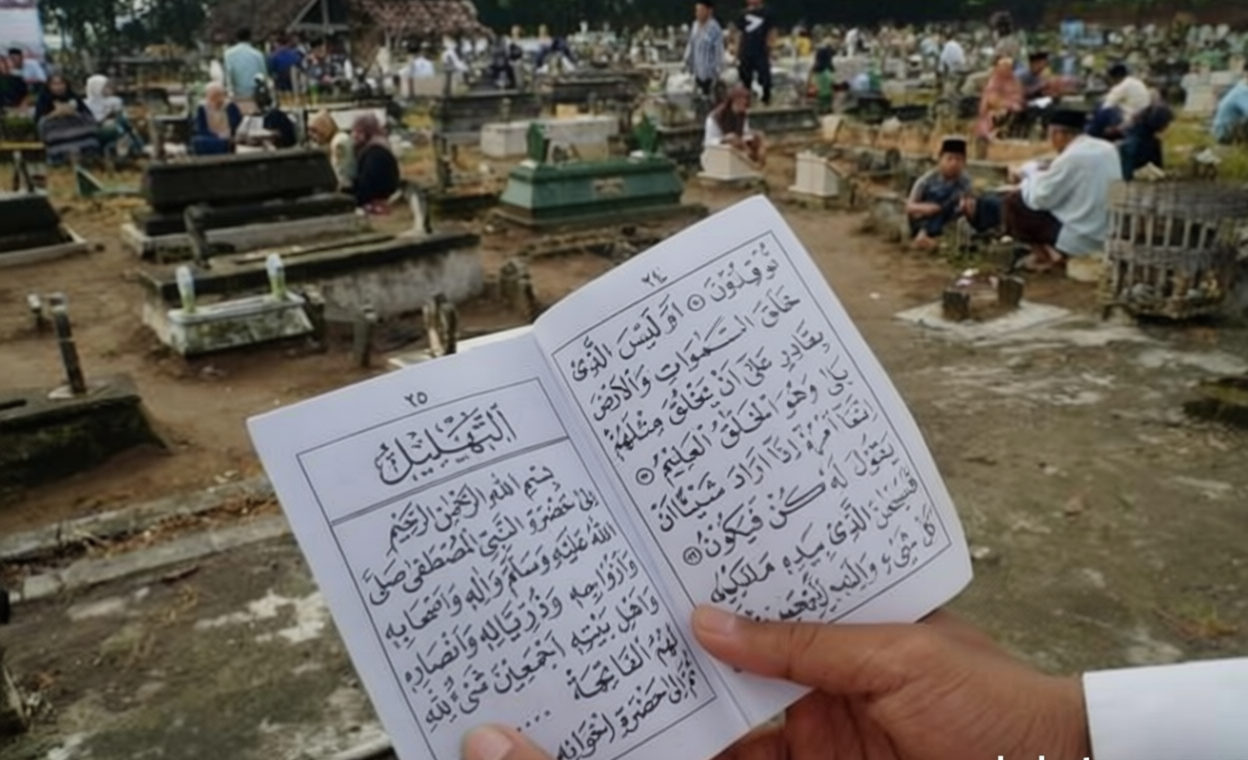 ٢٤
تُوْقِدُوْنَ اَوَلَيْسَ الَّذِىْ
خَلَقَ السَّمٰوَاتِ وَالْاَرْضَ
بِقَادِرٍ عَلٰى اَنْ يَخْلُقَ مِثْلَهُمْ
بَلٰى وَهُوَ الْخَلّٰقُ الْعَلِيْمُ
اِنَّمَا اَمْرُهُ اِذَا اَرَادَ شَيْئًا اَنْ
يَقُوْلَ لَهُ كُنْ فَيَكُوْنُ
فَسُبْحٰنَ الَّذِىْ بِيَدِهِ
كُلِّ شَىْءٍ وَاِلَيْهِ تُرْجَعُوْنَ
٢٥
اَلتَّهْلِيْلُ
بِسْمِ اللهِ الرَّحْمٰنِ الرَّحِيْمِ
اِلٰى حَضْرَةِ النَّبِيِّ الْمُصْطَفٰى صَلَّى
اللهُ عَلَيْهِ وَسَلَّمَ وَاٰلِهِ وَاَصْحَابِهِ
وَاَزْوَاجِهِ وَذُرِّيَّاتِهِ وَاَنْصَارِهِ
وَاَهْلِ بَيْتِهِ اَجْمَعِيْنَ شَىْءٌ لِلّٰهِ
لَهُمُ الْفَاتِحَةُ ....
ثُمَّ اِلٰى حَضْرَةِ اِخْوَانِهِ